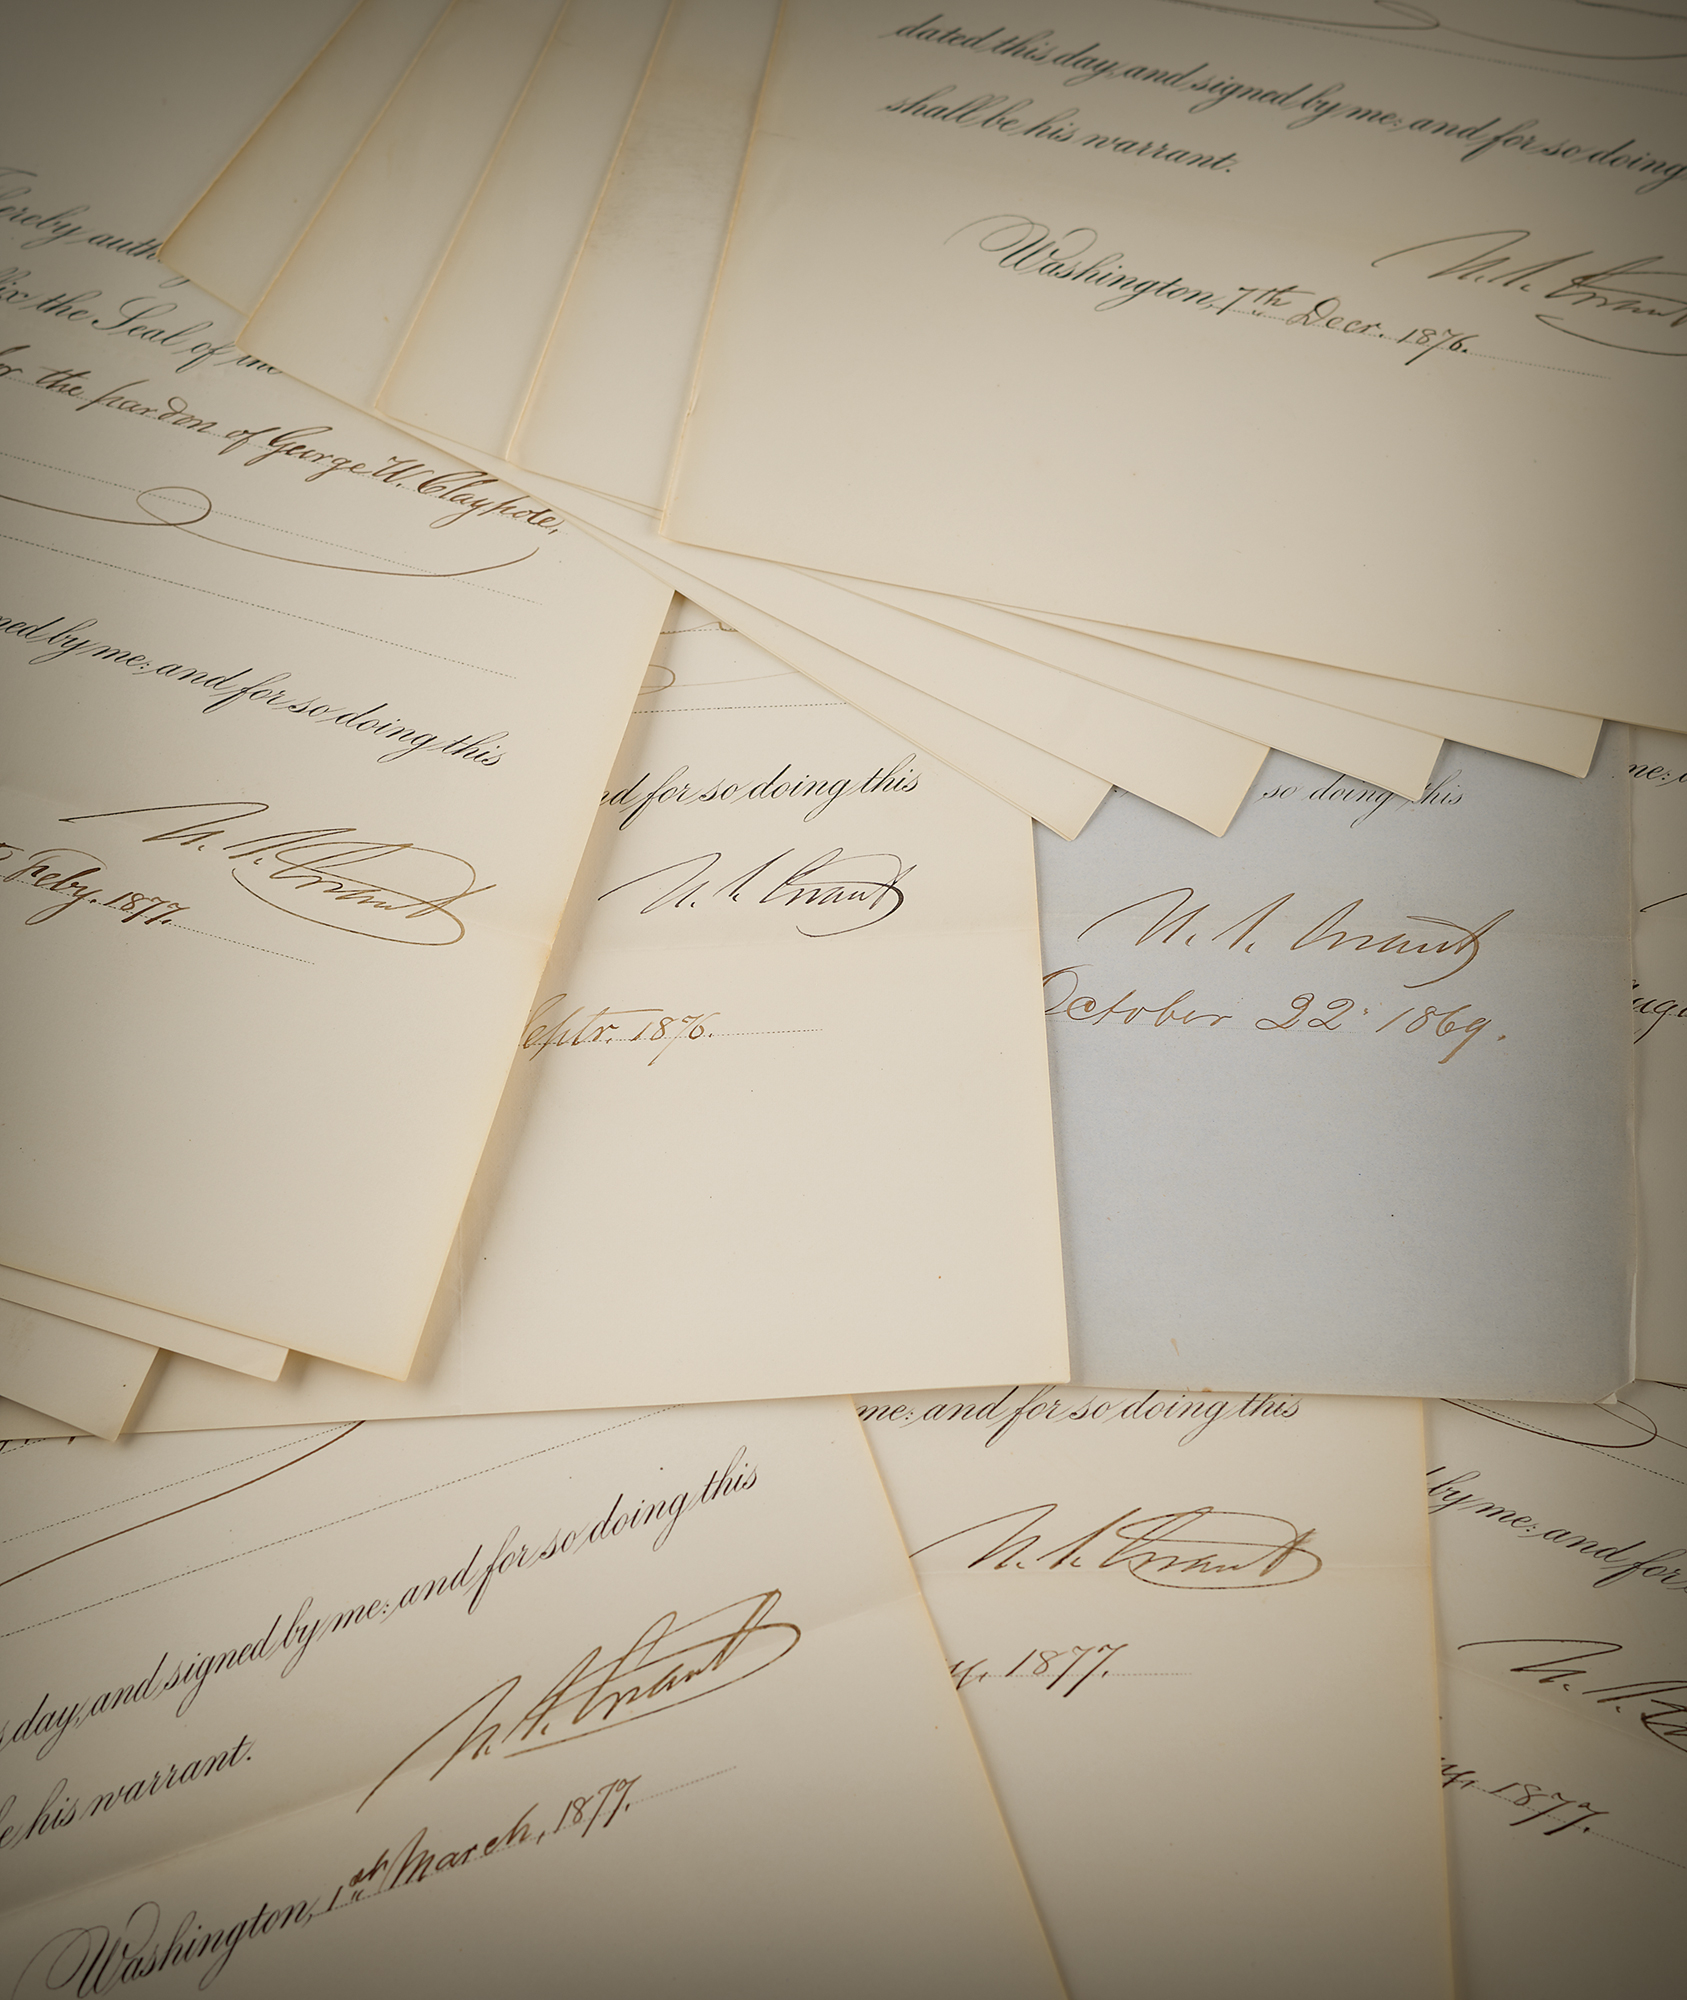 dated this day, and signed by me: and for so doing
shall be his warrant.
U. S. Grant
Washington, 7th Decr. 1876.
hereby auth
the Seal of the
for the pardon of George W. Claypole,
by me: and for so doing this
U. S. Grant
Feby. 1877.
for so doing this
U. S. Grant
Septr. 1876.
so doing this
U. S. Grant
October 22 1869.
me:
me: and for so doing this
U. S. Grant
1877.
by me: and for
U. S.
1877.
day, and signed by me: and for so doing this
his warrant.
U. S. Grant
Washington, 1st March, 1877.